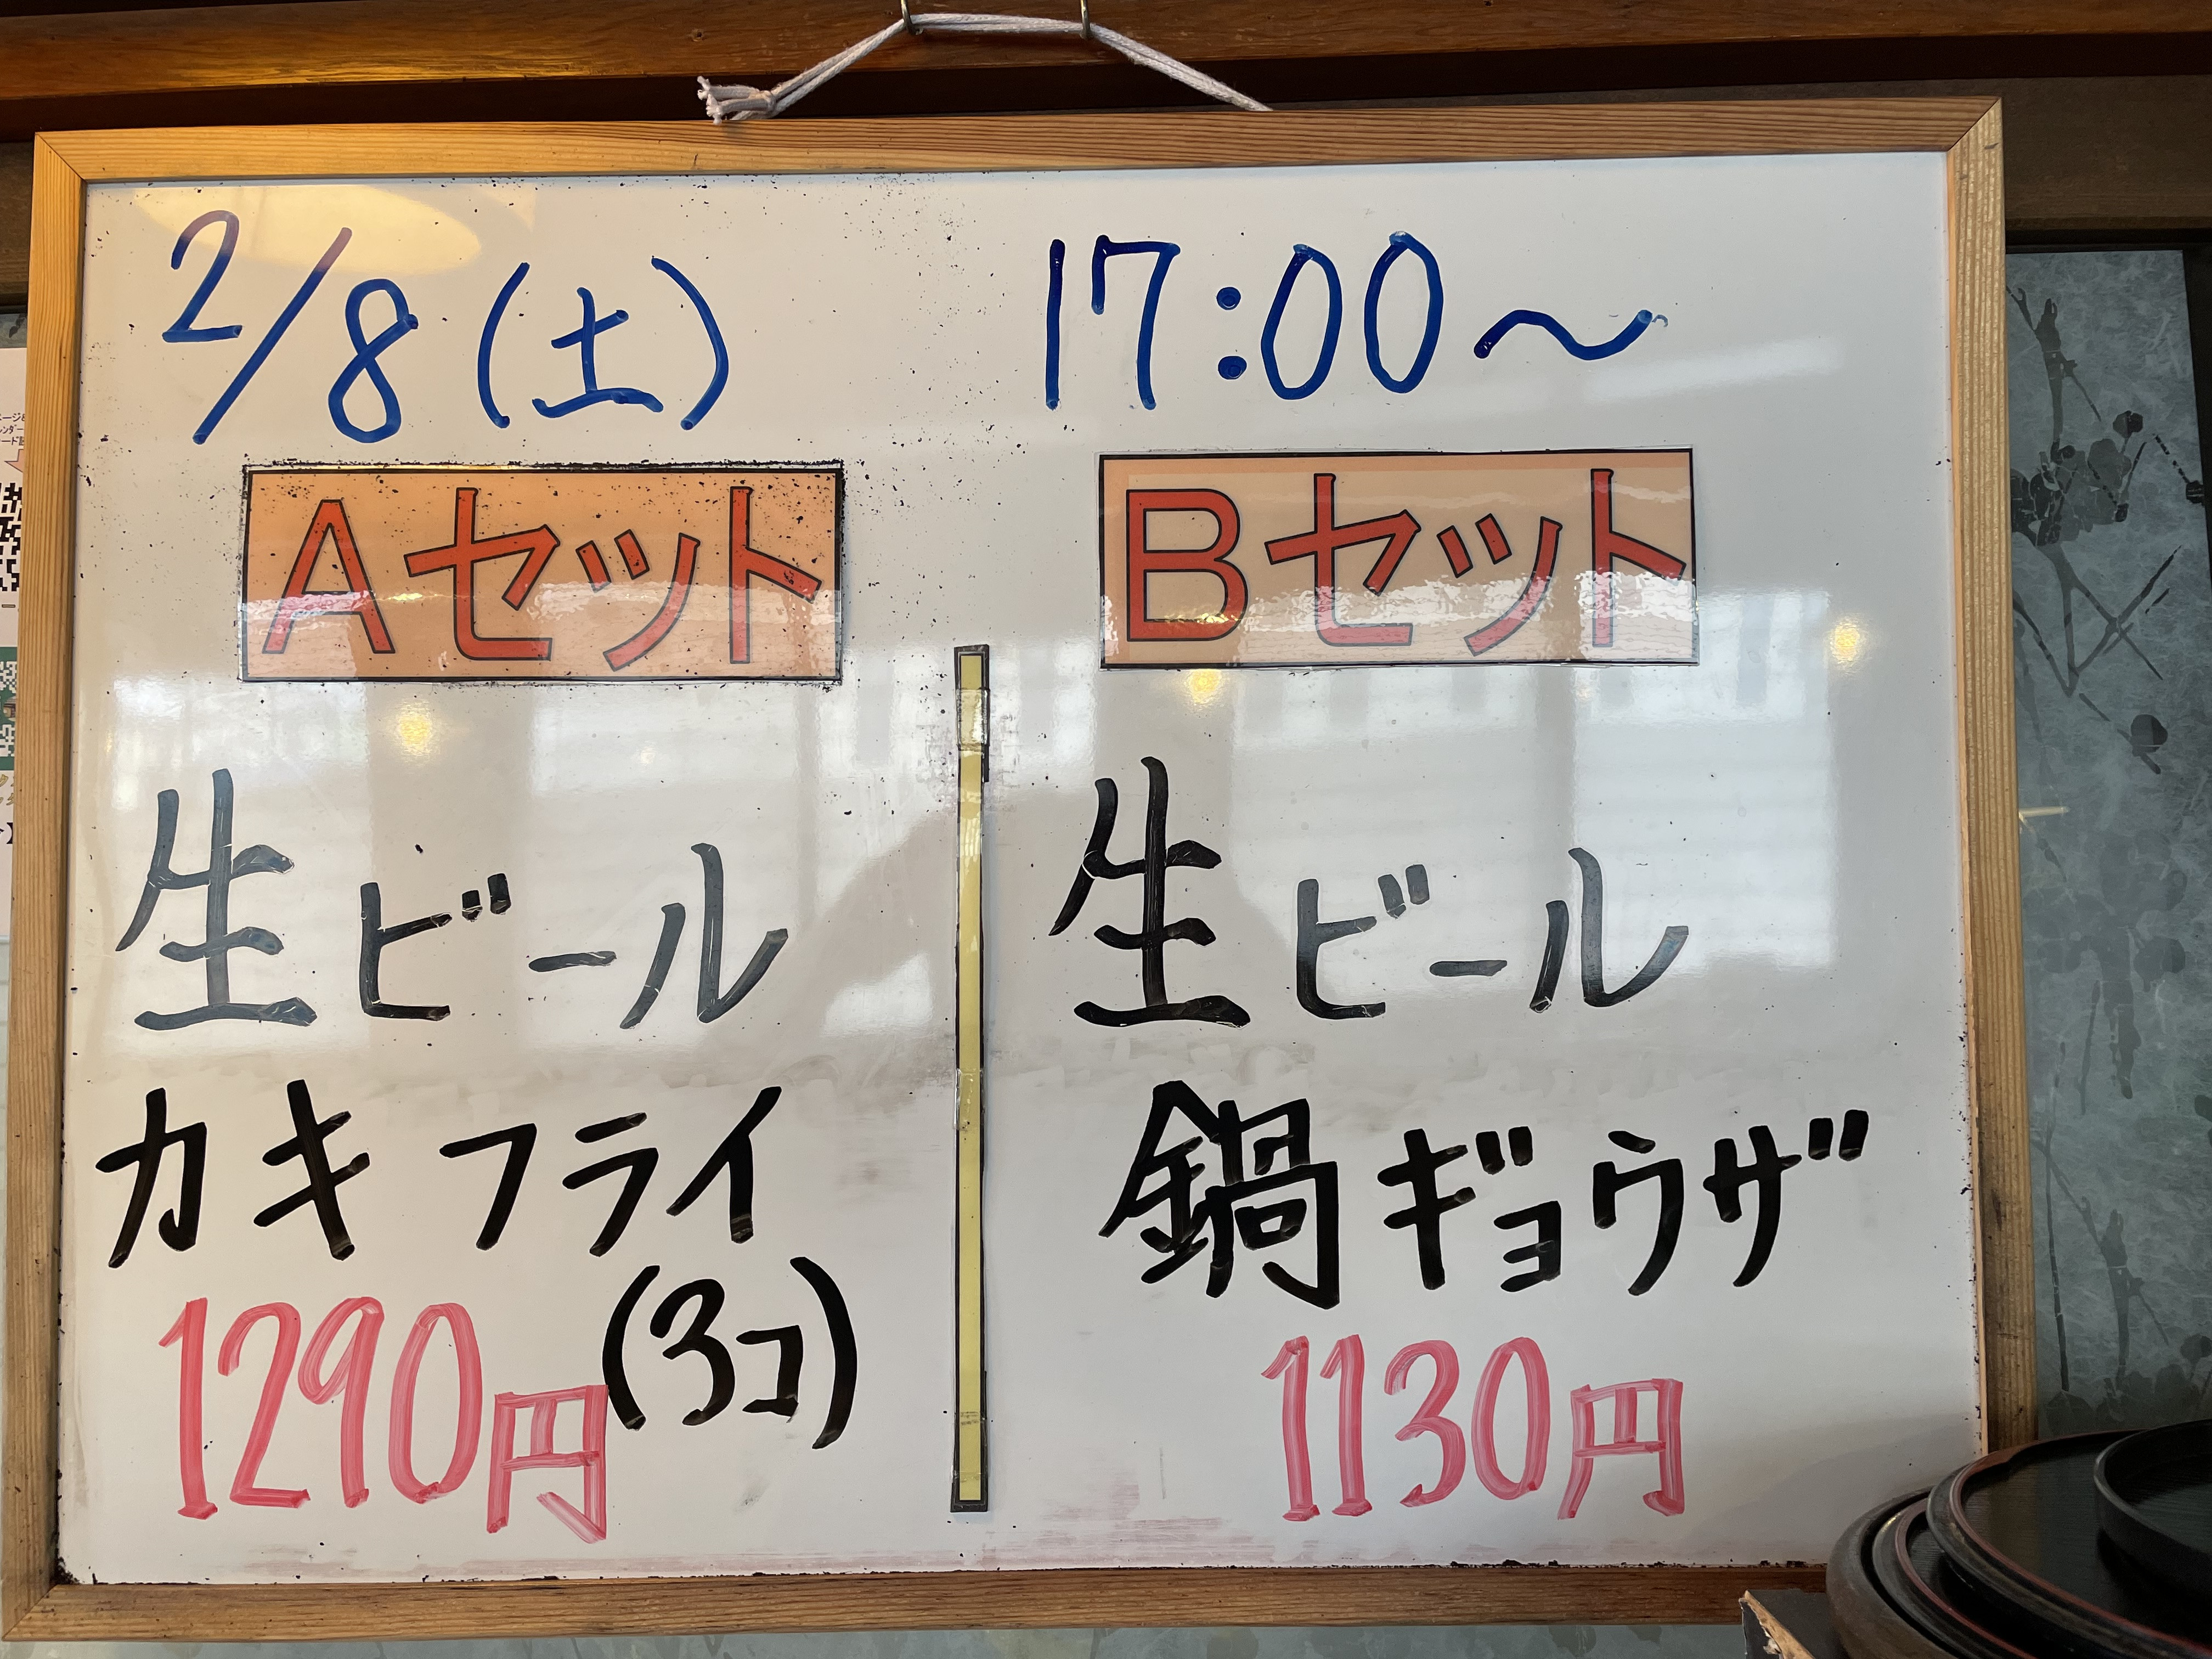 2/8(土) 17:00～
Aセット
生ビール
カキフライ
(3コ)
1290円
Bセット
生ビール
鍋ギョウザ
1130円